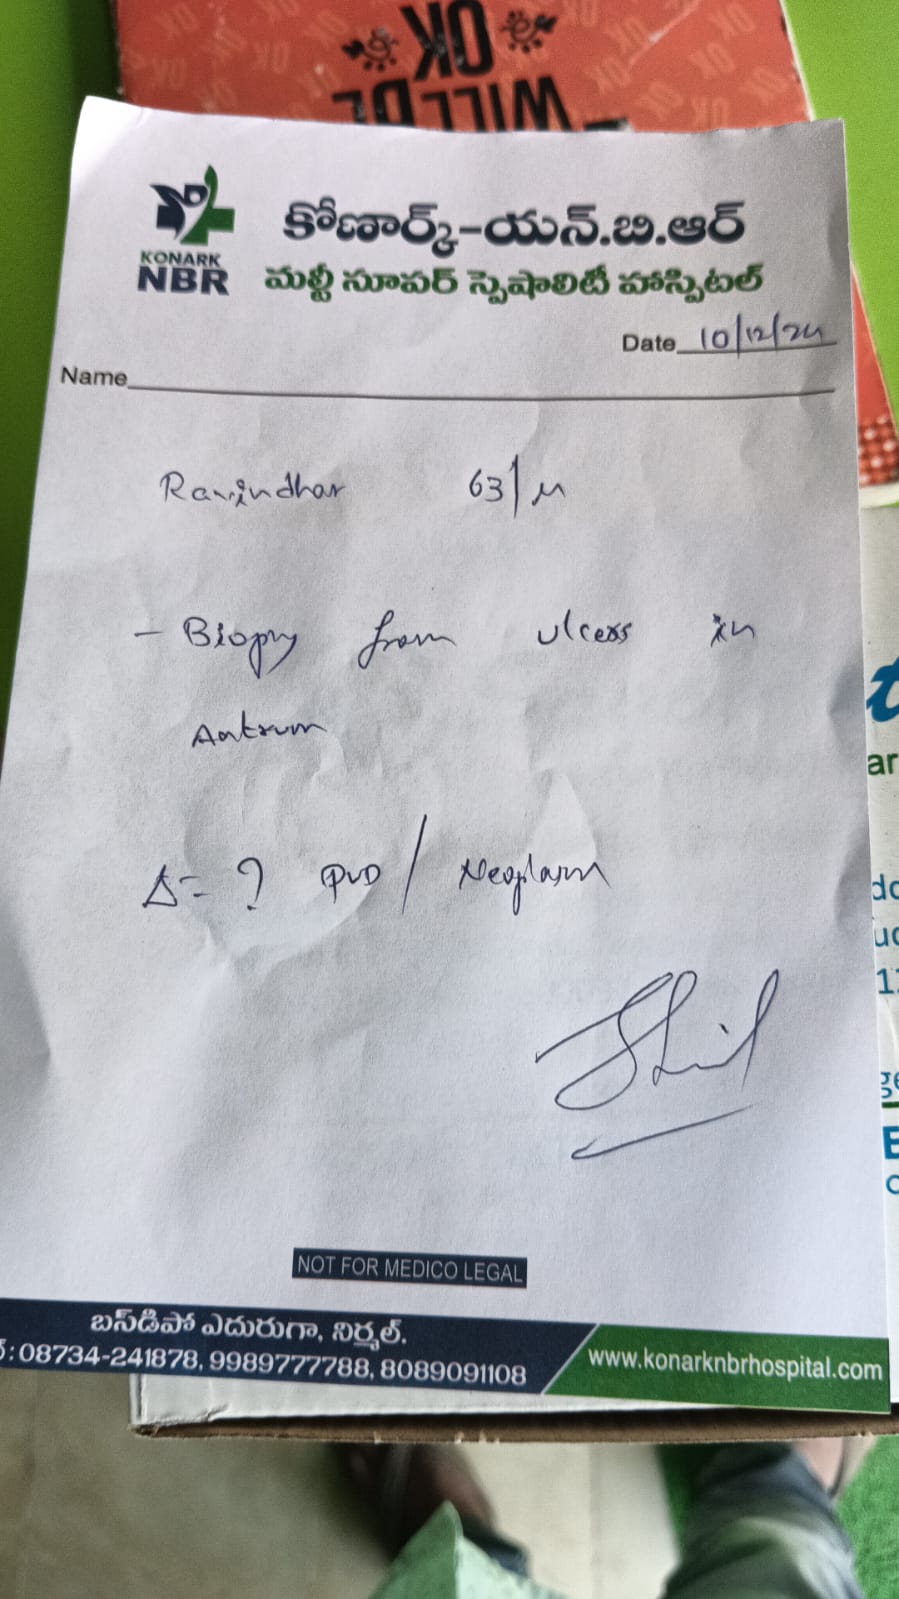 OK
WILL BE
KONARK
NBR
కోణార్క్-యన్.బి.ఆర్
మల్టీ సూపర్ స్పెషాలిటీ హాస్పిటల్
Date 10/12/24
Name
Ravindhar 63/M
- Biopsy from ulcers in
Antrum
Δ= ? PUD / Neoplasm
NOT FOR MEDICO LEGAL
బస్‌డిపో ఎదురుగా, నిర్మల్.
:08734-241878, 9989777788, 8089091108
www.konarknbrhospital.com